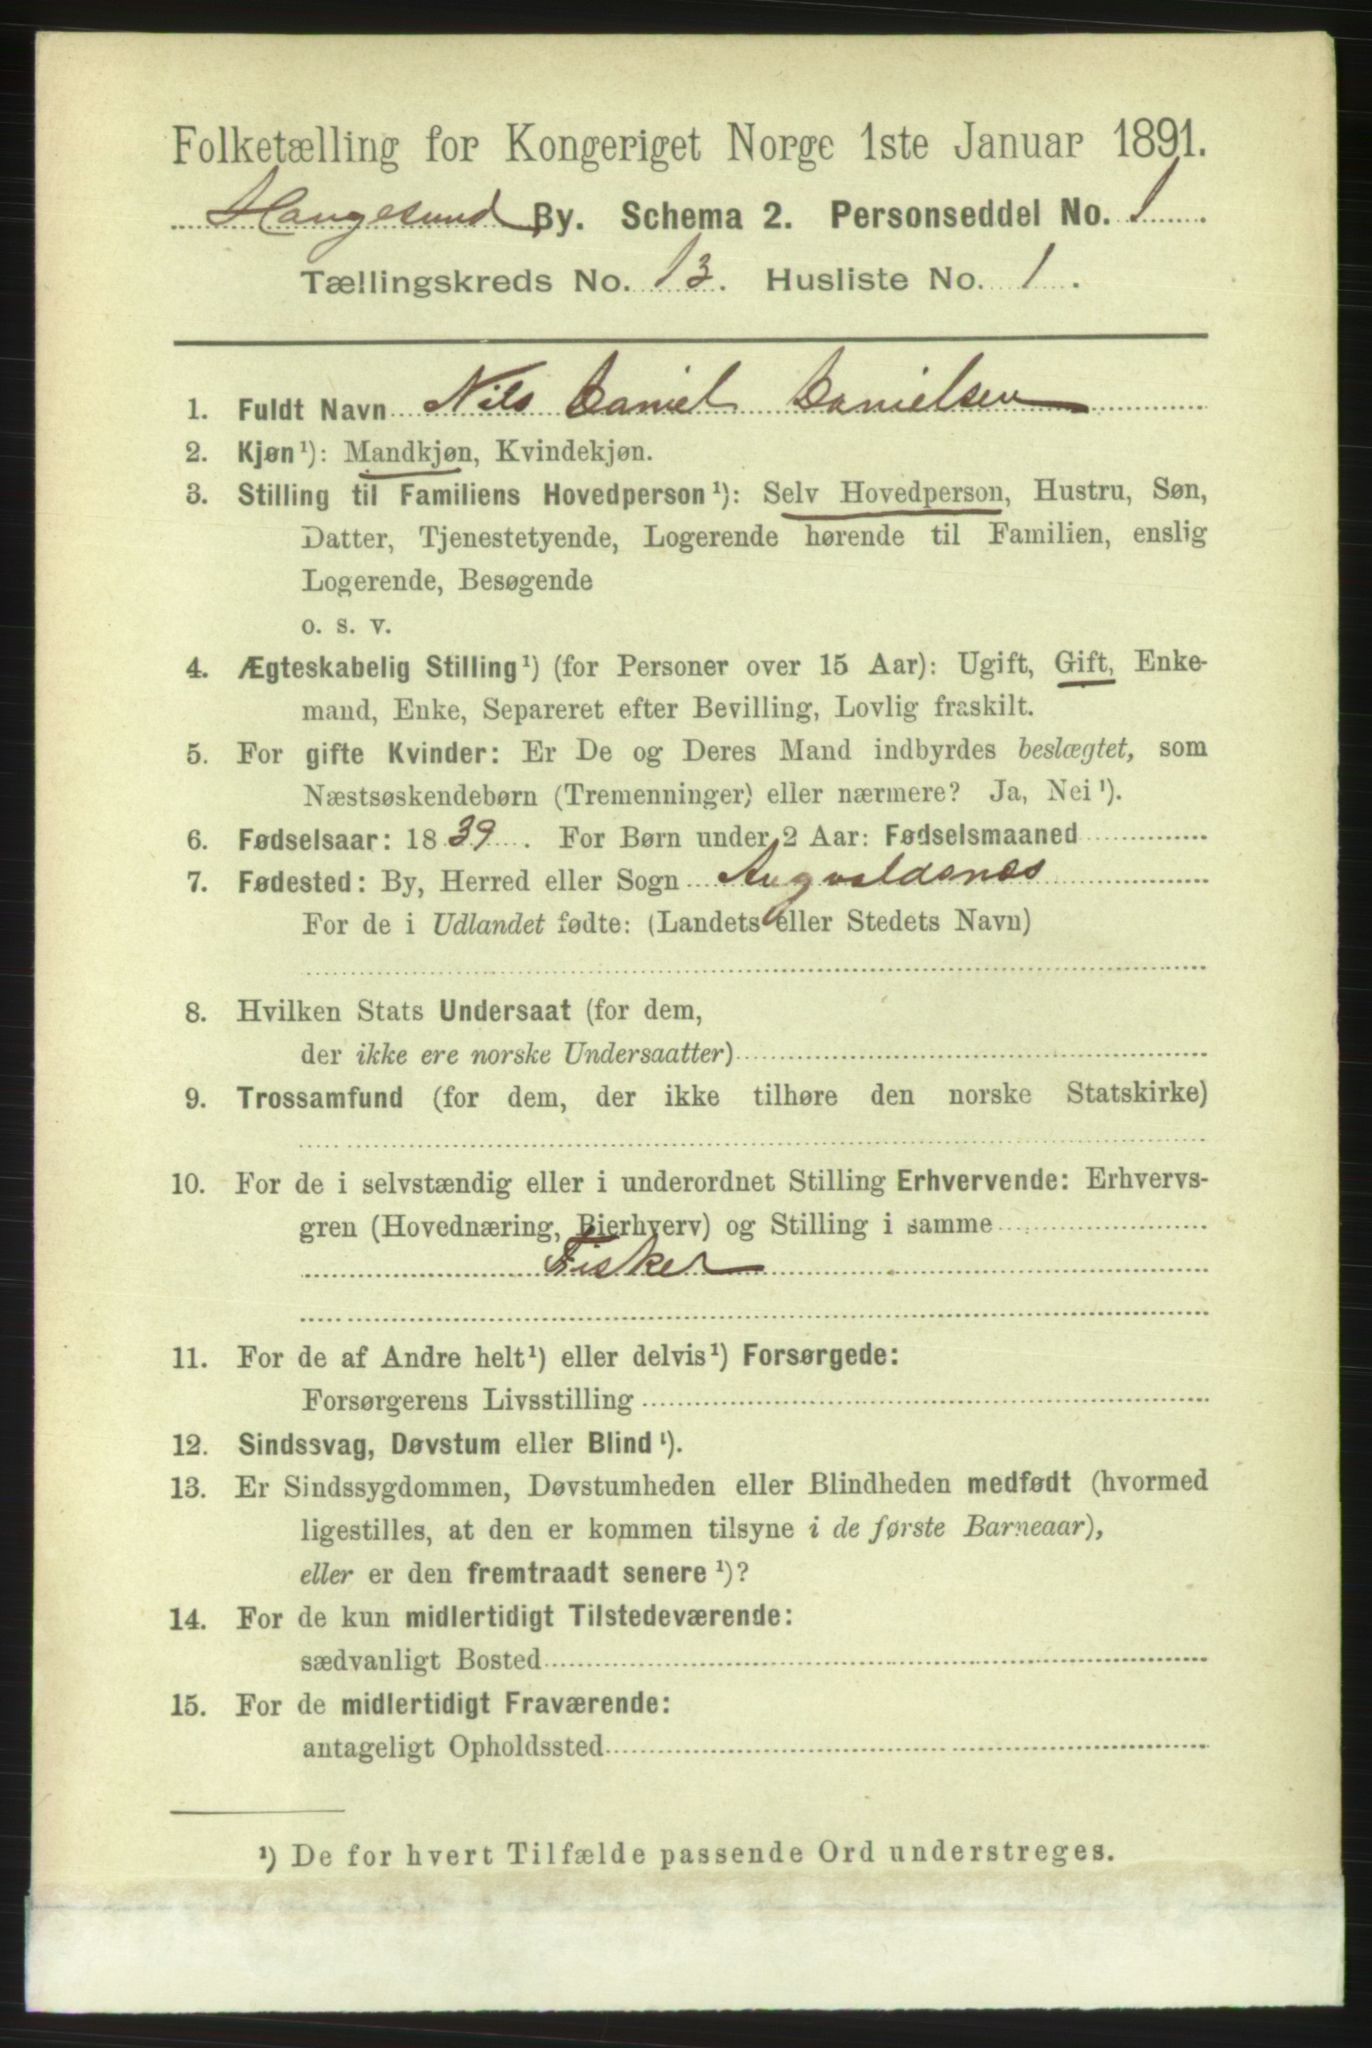 Folketælling for Kongeriget Norge 1ste Januar 1891.
Haugesund By. Schema 2. Personseddel No. 1
Tællingskreds No. 13. Husliste No. 1.
1. Fuldt Navn Nils Daniel Danielsen
2. Kjøn¹): Mandkjøn, Kvindekjøn.
3. Stilling til Familiens Hovedperson¹): Selv Hovedperson, Hustru, Søn,
Datter, Tjenestetyende, Logerende hørende til Familien, enslig
Logerende, Besøgende
o. s. v.
4. Ægteskabelig Stilling¹) (for Personer over 15 Aar): Ugift, Gift, Enke-
mand, Enke, Separeret efter Bevilling, Lovlig fraskilt.
5. For gifte Kvinder: Er De og Deres Mand indbyrdes beslægtet, som
Næstsøskendebørn (Tremenninger) eller nærmere? Ja, Nei¹).
6. Fødselsaar: 1839. For Børn under 2 Aar: Fødselsmaaned
7. Fødested: By, Herred eller Sogn Augvaldsnæs
For de i Udlandet fødte: (Landets eller Stedets Navn)
8. Hvilken Stats Undersaat (for dem,
der ikke ere norske Undersaatter)
9. Trossamfund (for dem, der ikke tilhøre den norske Statskirke)
10. For de i selvstændig eller i underordnet Stilling Erhvervende: Erhvervs-
gren (Hovednæring, Bierhverv) og Stilling i samme
Fisker
11. For de af Andre helt¹) eller delvis¹) Forsørgede:
Forsørgerens Livsstilling
12. Sindssvag, Døvstum eller Blind¹).
13. Er Sindssygdommen, Døvstumheden eller Blindheden medfødt (hvormed
ligestilles, at den er kommen tilsyne i de første Barneaar),
eller er den fremtraadt senere¹)?
14. For de kun midlertidigt Tilstedeværende:
sædvanligt Bosted
15. For de midlertidigt Fraværende:
antageligt Opholdssted
¹) De for hvert Tilfælde passende Ord understreges.